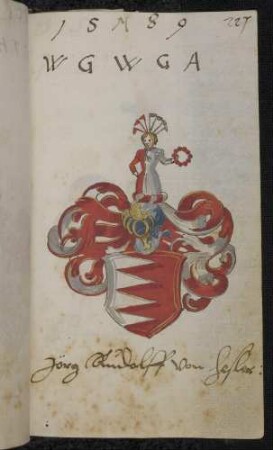 15 A 89
227
W G W G A
Jörg Rudolff von Hesler: